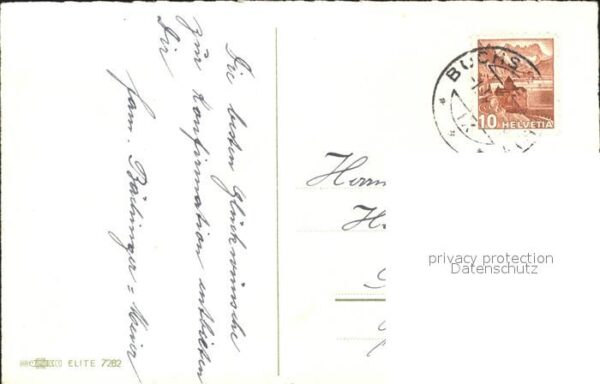 Die besten Glückwünsche
zur Konfirmation entbieten
Dir
Fam. Bächinger-Meier
ELITE 7282
BUCHS
10 HELVETIA
Herrn
privacy protection
Datenschutz